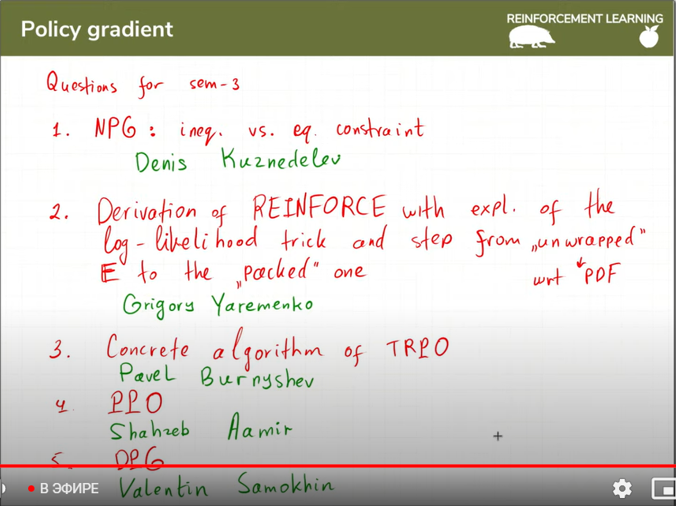 Policy gradient
REINFORCEMENT LEARNING
Questions for sem-3
1. NPG: ineq. vs. eq. constraint
Denis Kuznedelev
2. Derivation of REINFORCE with expl. of the
log-likelihood trick and step from „unwrapped"
E to the „packed" one wrt PDF
Grigory Yaremenko
3. Concrete algorithm of TRPO
Pavel Burnyshev
4 PPO
Shahzeb Aamir
5. DPG
В ЭФИРЕ
Valentin Samokhin